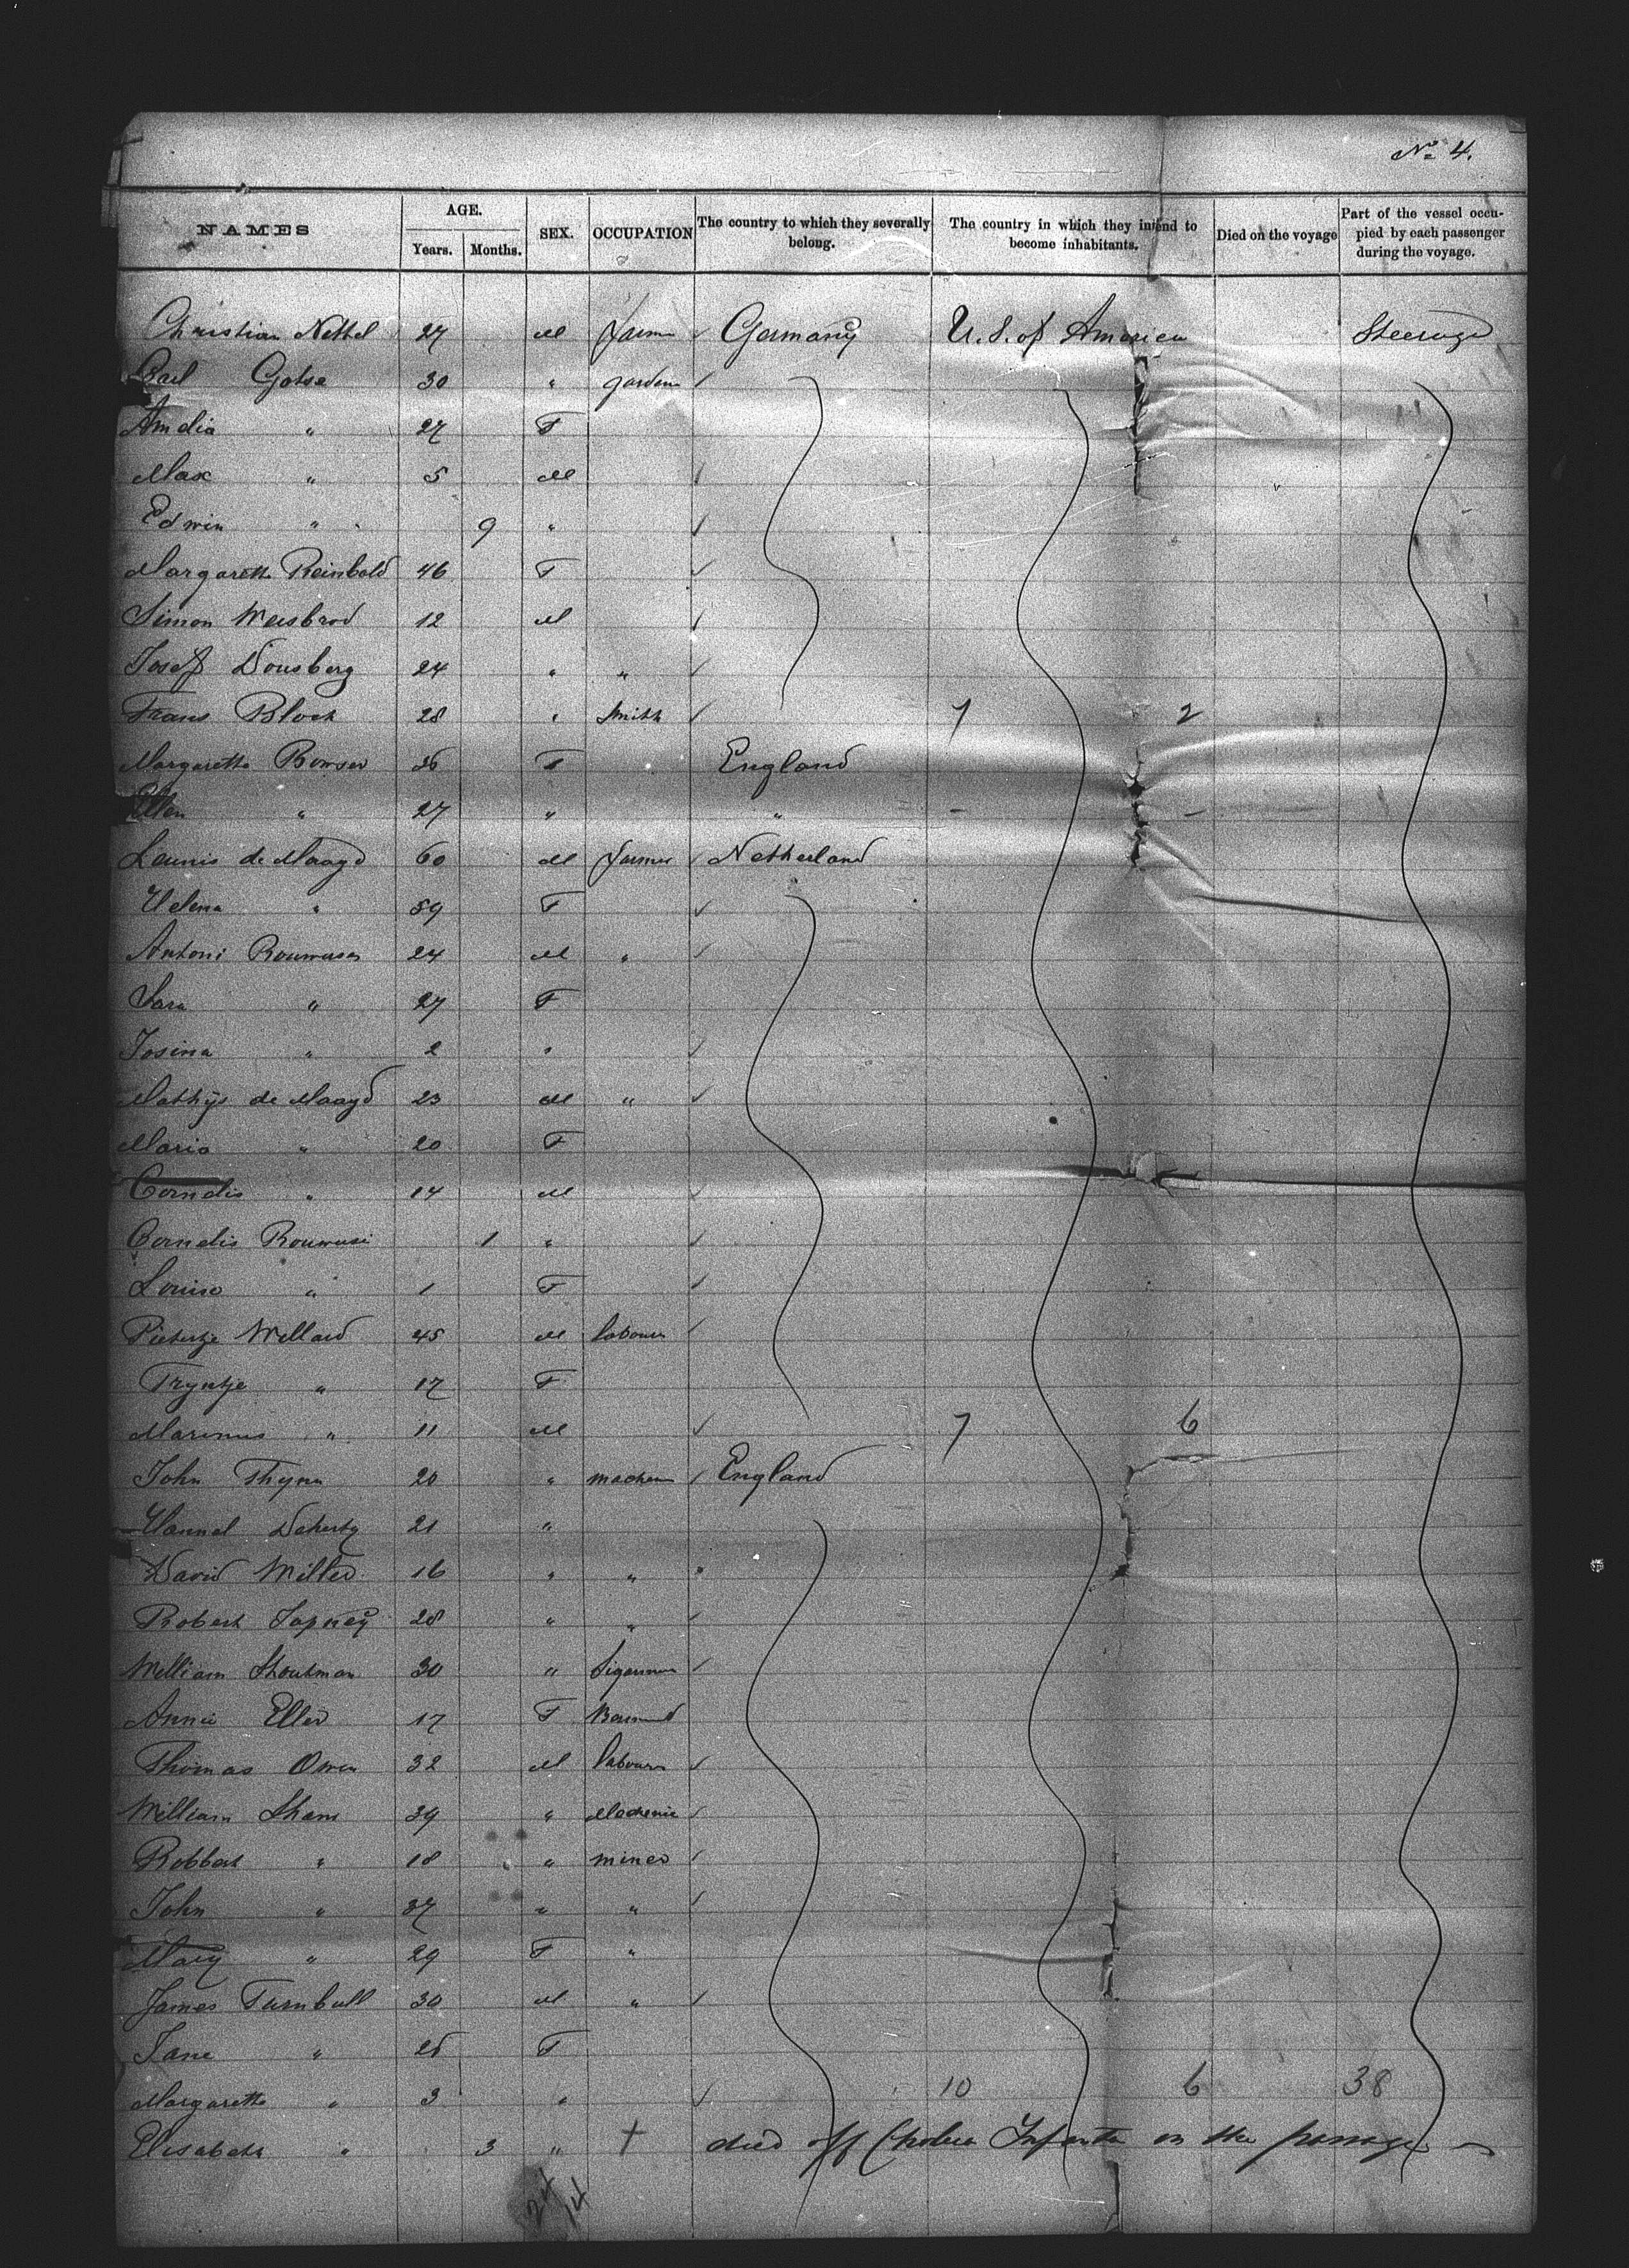 No 4.
NAMES AGE. Years. Months. SEX. OCCUPATION The country to which they severally belong. The country in which they intend to become inhabitants. Died on the voyage Part of the vessel occupied by each passenger during the voyage.
Christian Nettel 27 M Farmer Germany U.S. of America Steerage
Carl Gotse 30 " garden
Amelia " 27 F
Max " 5 M
Edwin " 9 "
Margaretha Reinbold 46 F
Simon Weisbrod 12 M
Josef Donsberg 24 " "
Frans Block 28 " Smith 7 2
Margaretha Bowser 26 F England
Ellen " 27 " "
Leunis de Maagd 60 M Farmer Netherland
Helena " 59 F
Antoni Rouwuse 24 M "
Sara " 27 F
Josina " 2 "
Mathijs de Maagd 23 M "
Maria " 20 F
Cornelis " 14 M
Cornelis Rouwuse 1 "
Louise " 1 F
Pietertje Willard 45 M labourer
Tryntje " 17 F
Marinus " 11 M 7 6
John Thynn 20 " mechan England
Doherty 21 "
David Miller 16 " "
Robert Tapney 28 " "
William Shoutman 30 " Sigarman
Annie Eller 17 F
Thomas Owen 32 M labourer
William Sham 39 " Mechenic
Robbert " 18 " miner
John " 37 " "
Mary " 29 F "
James Turnbull 30 M "
Jane " 25 F
Margaretha " 3 " 10 6 38
Elisabeth " 3 " + died off Cholera Infantu on the passage
24 14